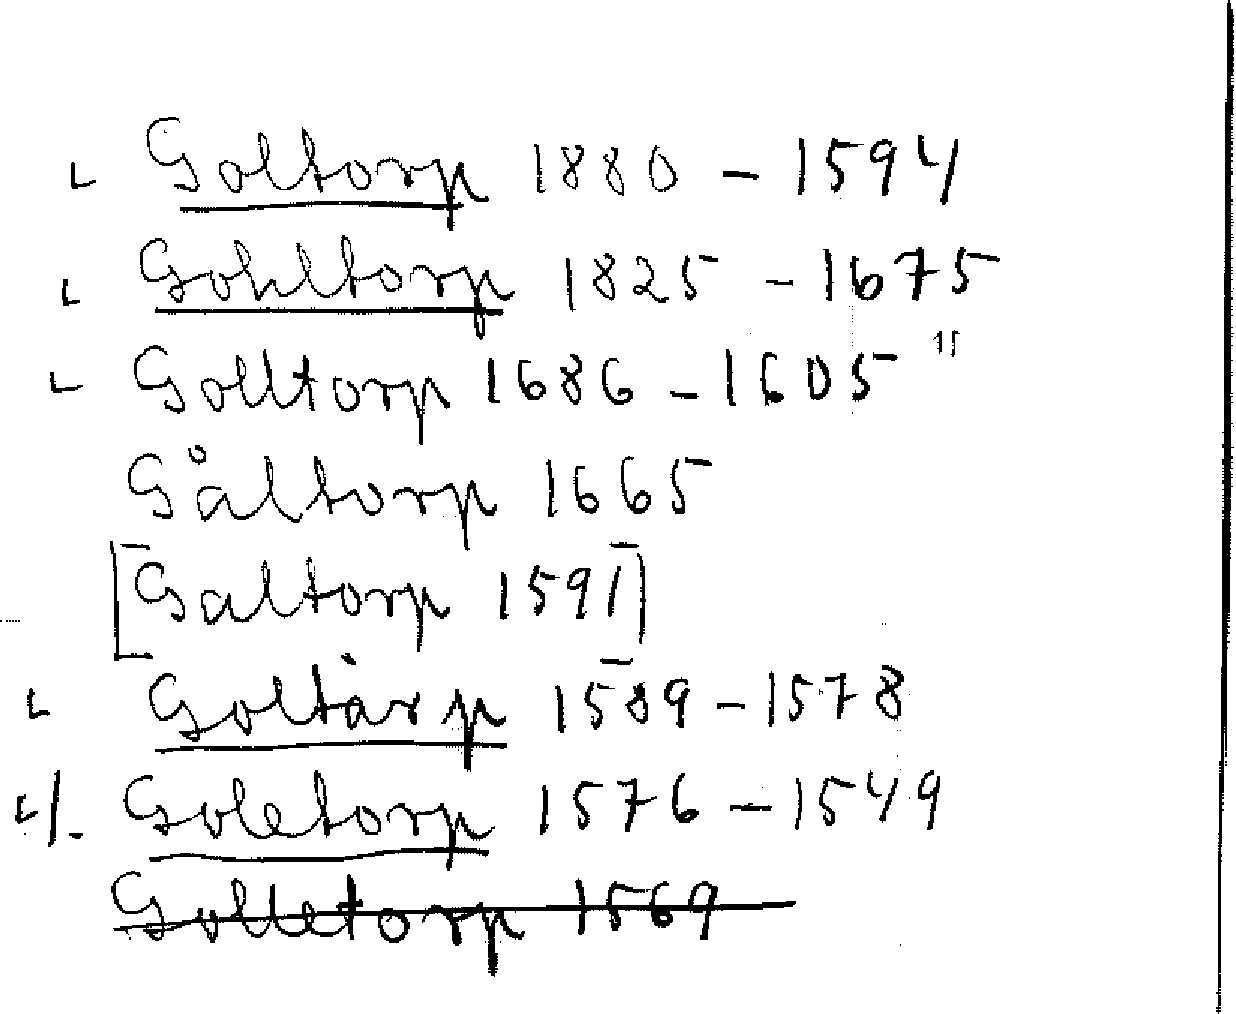 Goltorp 1880 - 1594
Gohltorp 1825 - 1675
Golltorp 1686 - 1605 "
Gåltorp 1665
[Galtorp 1591]
Goltårp 1589 - 1578
·/. Goletorp 1576 - 1549
Golletorp 1569